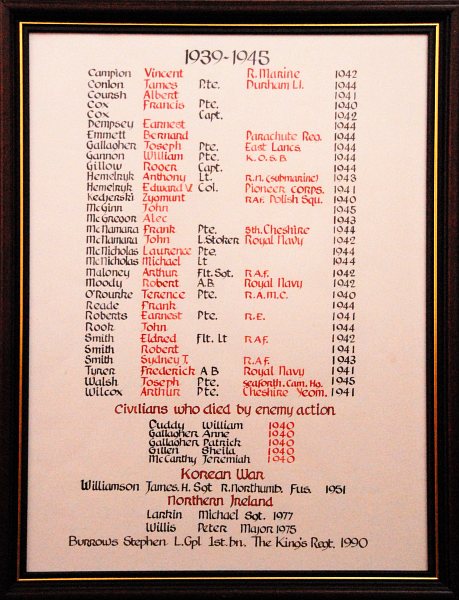 1939-1945
Campion Vincent R. Marine 1942
Conlon James Pte. Durham L.I. 1944
Coursh Albert 1941
Cox Francis Pte. 1940
Cox Capt. 1942
Dempsey Earnest 1944
Emmett Bernard Parachute Reg. 1944
Gallagher Joseph Pte. East Lancs. 1944
Gannon William Pte. K.O.S.B. 1944
Gillow Roger Capt. 1944
Hemelryk Anthony Lt. R.n. (submarine) 1943
Hemelryk Edward V. Col. Pioneer corps. 1941
Kedjerski Zygmunt RAF. Polish Squ. 1940
McGinn John 1945
McGregor Alec 1943
McNamara Frank Pte. 5th. Cheshire 1944
McNamara John L.Stoker Royal Navy 1942
McNicholas Laurence Pte. 1944
McNicholas Michael Lt 1944
Maloney Arthur Flt. Sgt. R.A.F. 1942
Moody Robert A.B Royal Navy 1942
O'Rourke Terence Pte. R.A.M.C. 1940
Reade Frank 1944
Roberts Earnest Pte. R.E. 1941
Rook John 1944
Smith Eldred Flt. Lt RAF. 1942
Smith Robert 1941
Smith Sydney T. R.A.F. 1943
Tyrer Frederick A B Royal Navy 1941
Walsh Joseph Pte. Seaforth. Cam. Hg. 1945
Wilcox Arthur Pte. Cheshire Yeom. 1941
Civilians who died by enemy action
Cuddy William 1940
Gallagher Anne 1940
Gallagher Patrick 1940
Gillen Sheila 1940
McCarthy Jeremiah 1940
Korean War
Williamson James. H. Sgt R. Northumb. Fus. 1951
Northern Ireland
Larkin Michael Sgt. 1977
Willis Peter Major 1975
Burrows Stephen L. Cpl 1st. bn. The King's Regt. 1990